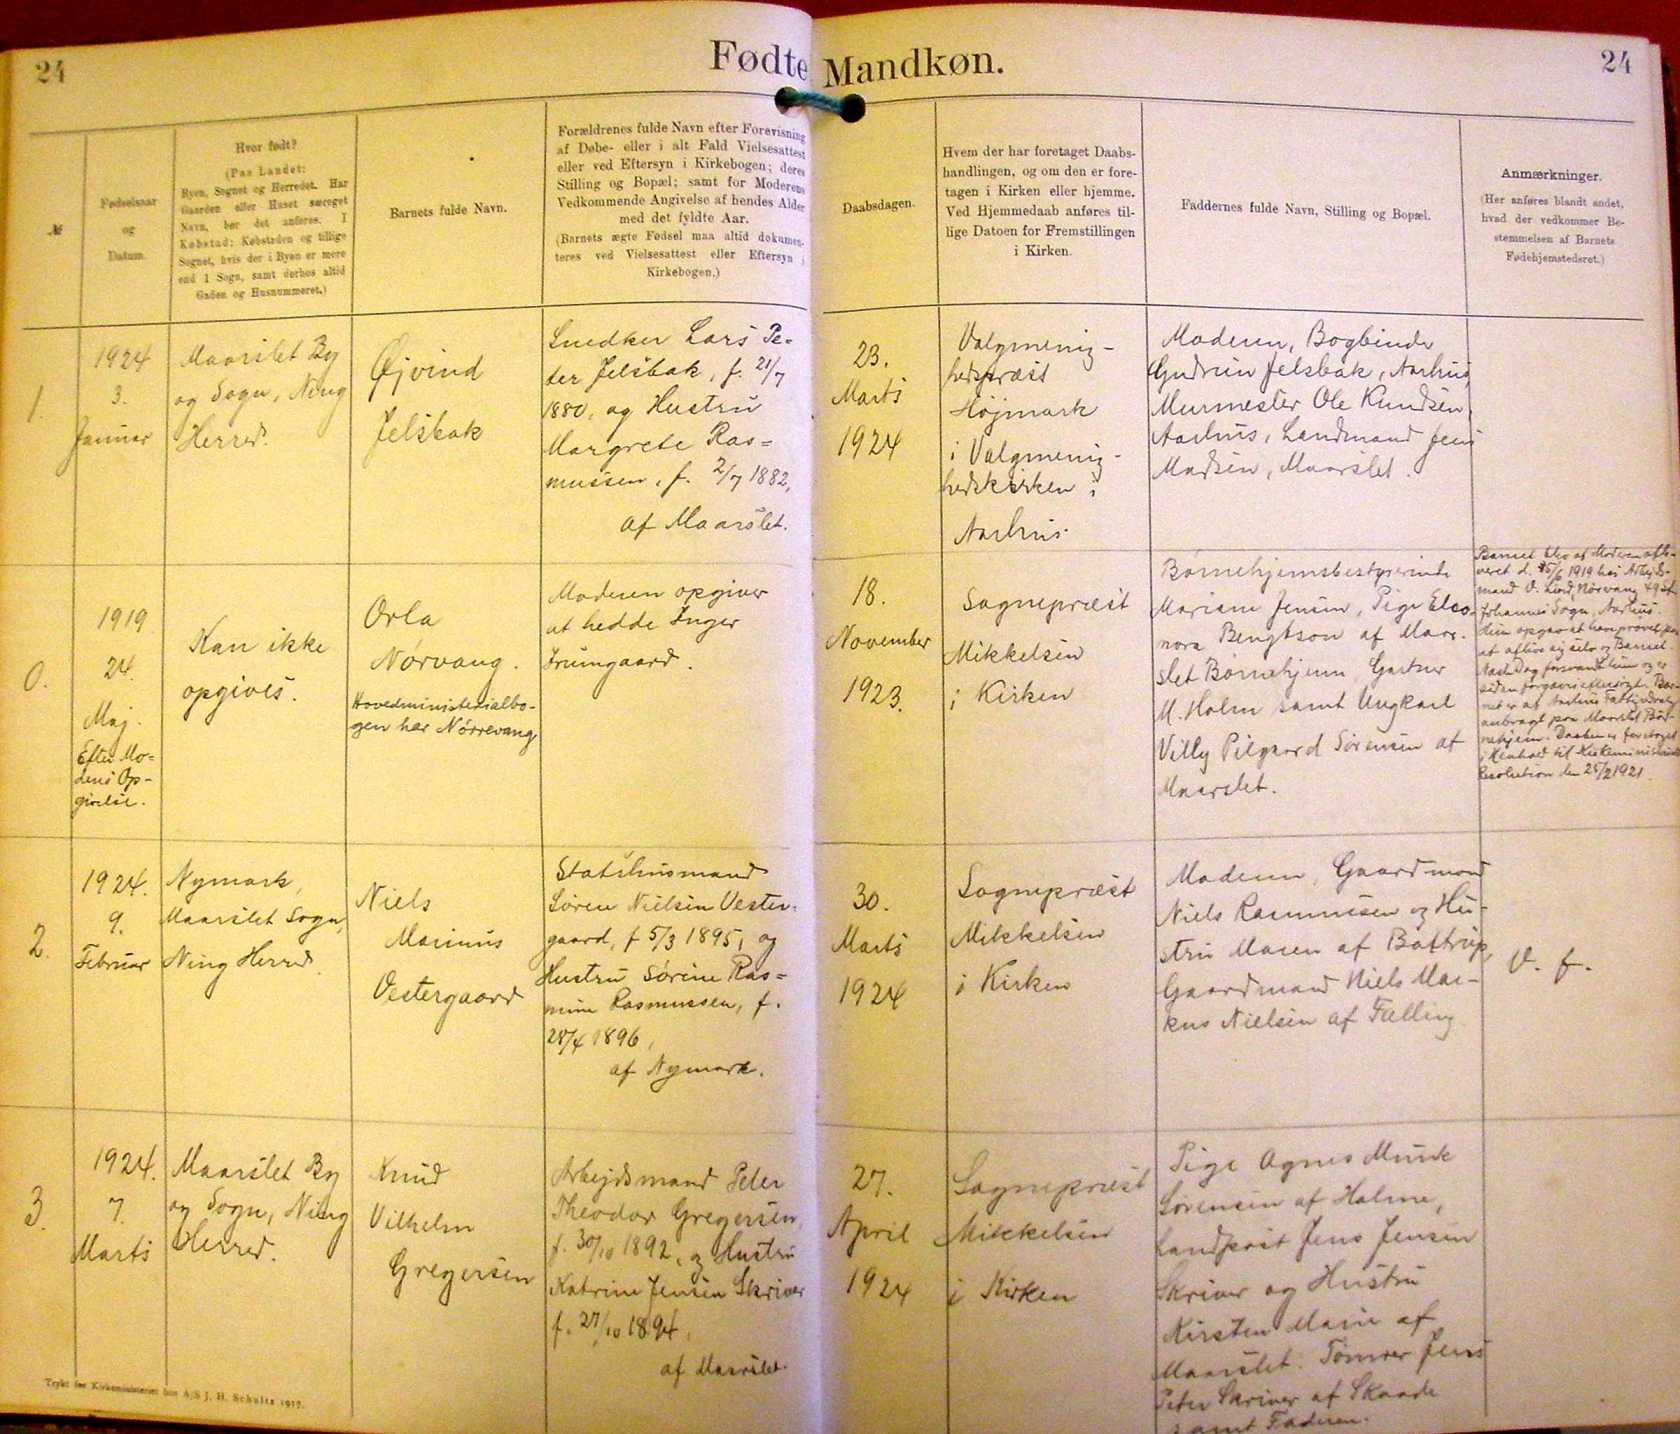 24
Fødte Mandkøn.
24
№
Fødselsaar
og
Datum.
Hvor født?
(Paa Landet:
Byen, Sognet og Herredet. Har
Gaarden eller Huset særeget
Navn, bør det anføres. I
Købstad: Købstaden og tillige
Sognet, hvis der i Byen er mere
end 1 Sogn, samt derhos altid
Gaden og Husnummeret.)
Barnets fulde Navn.
Forældrenes fulde Navn efter Forevisning
af Døbe- eller i alt Fald Vielsesattest
eller ved Eftersyn i Kirkebogen; deres
Stilling og Bopæl; samt for Moderens
Vedkommende Angivelse af hendes Alder
med det fyldte Aar.
(Barnets ægte Fødsel maa altid dokumen-
teres ved Vielsesattest eller Eftersyn i
Kirkebogen.)
Daabsdagen.
Hvem der har foretaget Daabs-
handlingen, og om den er fore-
tagen i Kirken eller hjemme.
Ved Hjemmedaab anføres til-
lige Datoen for Fremstillingen
i Kirken.
Faddernes fulde Navn, Stilling og Bopæl.
Anmærkninger.
(Her anføres blandt andet,
hvad der vedkommer Be-
stemmelsen af Barnets
Fødehjemstedsret.)
1.
1924
3.
Januar
Maarslet By
og Sogn, Ning
Herred.
Øjvind
Jelsbak
Snedker Lars Pe-
ter Jelsbak, f. 21/7
1880, og Hustru
Margrete Ras-
mussen, f. 2/7 1882,
af Maarslet.
23.
Marts
1924
Valgmenig-
hedspræst
Højmark
i Valgmenig-
hedskirken i
Aarhus.
Moderen, Bogbinder
Gudrun Jelsbak, Aarhus,
Murmester Ole Knudsen,
Aarhus, Landmand Jens
Madsen, Maarslet.
0.
1919
24.
Maj.
Efter Mo-
dens Op-
givelse.
Kan ikke
opgives.
Orla
Nørvang.
Hovedministerialbo-
gen har Nørrevang
Moderen opgiver
at hedde Inger
Irumgaard.
18.
November
1923.
Sognepræst
Mikkelsen
i Kirken
Børnehjemsbestyrerinde
Mariane Jensen, Pige Eleo-
nora Bengtson af Maar-
slet Børnehjem, Gartner
M. Holm samt Ungkarl
Villy Pilgaard Sørensen af
Maarslet.
Barnet blev af Moderen afle-
veret d. 15/6 1919 hos Arbejds-
mand V. Lind, Nørvang 49 St.
Johannes Sogn, Aarhus.
Hun opgav at have prøvet paa
at aflive sig selv og Barnet.
Næste Dag forsvandt hun og er
siden forgæves eftersøgt. Bar-
net er af Aarhus Fattigvæsen
anbragt paa Maarslet Bør-
nehjem. Daaben er foretaget
i Henhold til Kirkeministeriets
Resolution den 25/2 1921.
2.
1924.
9.
Februar
Nymark,
Maarslet Sogn,
Ning Herred.
Niels
Marinus
Vestergaard
Statshusmand
Søren Nielsen Vester-
gaard, f 5/3 1895, og
Hustru Sørine Ras-
mine Rasmussen, f.
28/4 1896,
af Nymark.
30.
Marts
1924
Sognepræst
Mikkelsen
i Kirken
Moderen, Gaardmand
Niels Rasmussen og Hu-
stru Maren af Battrup,
Gaardmand Niels Mar-
kus Nielsen af Fælling
V. f.
3.
1924.
7.
Marts
Maarslet By
og Sogn, Ning
Herred.
Knud
Vilhelm
Gregersen
Arbejdsmand Peter
Theodor Gregersen,
f. 30/10 1892, og Hustru
Katrine Jensen Skriver
f. 27/10 1894,
af Maarslet.
27.
April
1924
Sognepræst
Mikkelsen
i Kirken
Pige Agnes Munk
Sørensen af Holme,
Landpost Jens Jensen
Skriver og Hustru
Kirsten Marie af
Maarslet. Tømrer Jens
Peter Skriver af Skaade
samt Faderen.
Trykt for Kirkeministeriet hos A/S J. H. Schultz 1917.